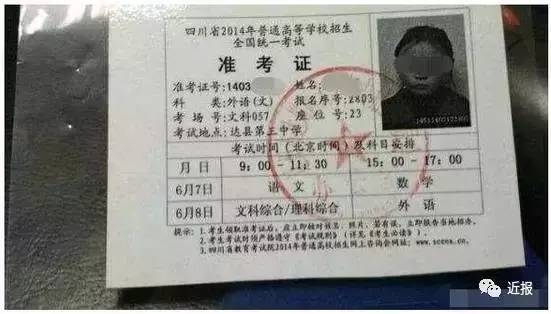 四川省2014年普通高等学校招生
全国统一考试
准考证
准考证号:1403
姓名:
科 类:外语(文)
报名序号:2803
考 场 号:文科057
座 位 号:23
考试地点:达县第三中学
考试时间(北京时间)及科目安排
月 日 9:00-11:30 15:00-17:00
6月7日 语文 数学
6月8日 文科综合/理科综合 外语
提示:1.考生领取准考证后,应立即核对姓名、照片,若有误,立即报告当地招办。
2.考生考试时须严格遵守《考试规则》(详见《考生必读》)。
3.四川省教育考试院2014年普通高校招生网上咨询会网址:www.sceea.cn。
近报